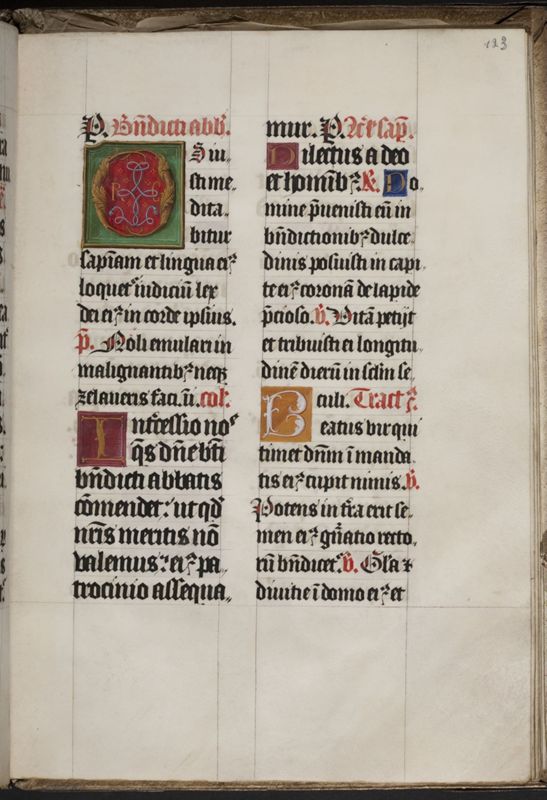 123
P. Bn̄dicti abb̄.
O S iu„
sti me„
dita„
bitur
sapīam et lingua eiꝰ
loquet᷑ iudiciū lex
dei eiꝰ in corde ipsius.
p̄. Noli emulari in
malignantibꝫ neqꝫ
zelaueris faci. ū. coll᷑
Int᷑cessio nos
qs̄ dn̄e bt̄i
bn̄dicti abbatis
cōmendet: ut qd̄
nr̄is meritis nō
valemus: eiꝰ pa„
trocinio assequa„
mur. P. Ac᷑e sap̄.
Dilectus a deo
et homībꝫ. R. Do„
mine p̄uenisti eū in
bn̄dictionibꝫ dulce„
dinis posuisti in capi„
te eiꝰ coronā de lapide
p̄cioso. v̄. Vitā petijt
et tribuisti ei longitu„
dinē dierū in sc̄lm se„
culi. Tractꝰ.
Beatus vir qui
timet dn̄m ī manda„
tis eiꝰ cupit nimis. v̄.
Potens in t᷑ra erit se„
men eiꝰ gn̄atio recto„
rū bn̄dicet᷑. v̄. Gl̄a ⁊
diuitie ī domo eiꝰ et